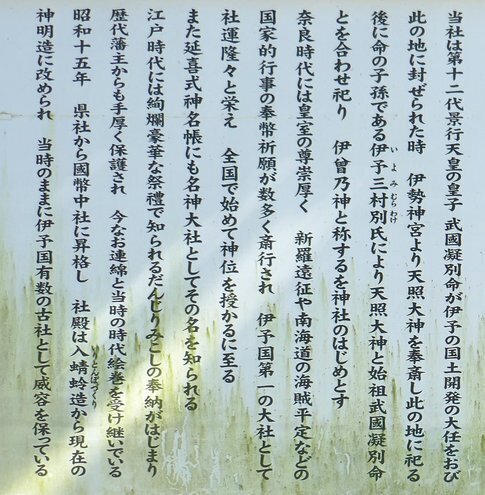 当社は第十二代景行天皇の皇子　武國凝別命が伊予の国土開発の大任をおび
此の地に封ぜられた時　伊勢神宮より天照大神を奉斎し此の地に祀る
後に命の子孫である伊予三村別氏により天照大神と始祖武國凝別命
いよみむらわけ
とを合わせ祀り　伊曽乃神と称するを神社のはじめとす
奈良時代には皇室の尊崇厚く　新羅遠征や南海道の海賊平定などの
国家的行事の奉幣祈願が数多く斎行され　伊予国第一の大社として
社運隆々と栄え　全国で始めて神位を授かるに至る
また延喜式神名帳にも名神大社としてその名を知られる
江戸時代には絢爛豪華な祭禮で知られるだんじりみこしの奉納がはじまり
歴代藩主からも手厚く保護され　今なお連綿と当時の時代絵巻を受け継いでいる
昭和十五年　県社から國幣中社に昇格し　社殿は入蜻蛉造から現在の
いりとんぼづくり
神明造に改められ　当時のままに伊予国有数の古社として威容を保っている